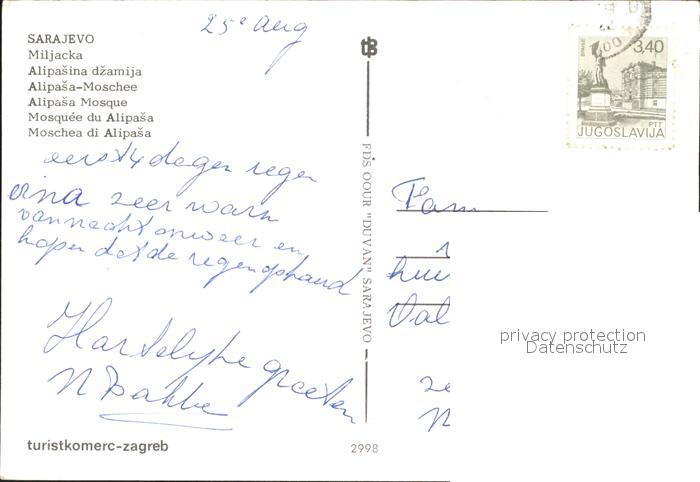 25e aug
SARAJEVO
Miljacka
Alipašina džamija
Alipaša-Moschee
Alipaša Mosque
Mosquée du Alipaša
Moschea di Alipaša
eerst 4 dagen regen
erna zeer warm
vannacht onweer en
hopen dat de regen ophoud
Hartelijke groeten
N Bakke
turistkomerc-zagreb
2998
FDS OOUR "DUVAN" SARAJEVO
3,40
PTT
JUGOSLAVIJA
Fam
Val
privacy protection
Datenschutz